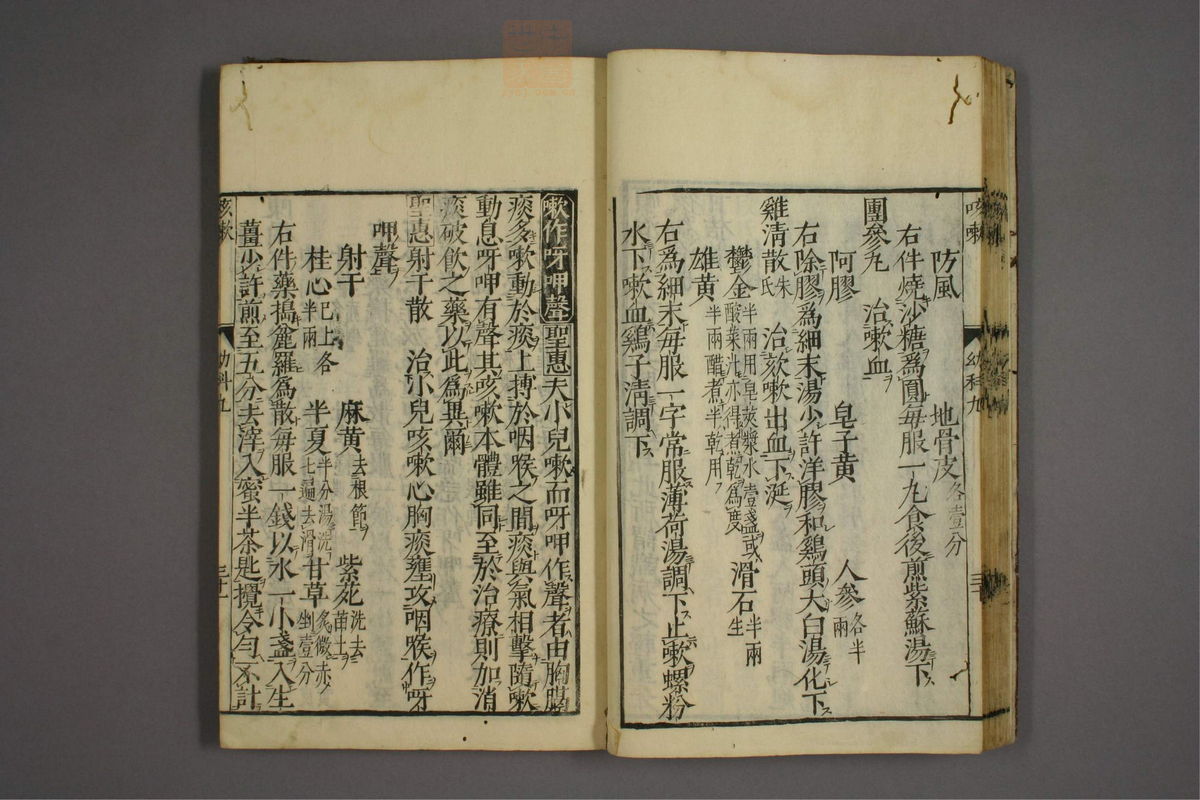 咳嗽 幼科九
防風 地骨皮各壹分
右件燒沙糖爲圓每服一丸食後煎紫蘇湯下
團參丸 治嗽血
阿膠 皂子黄 人參各半兩
右除膠爲細末湯少許洋膠和鷄頭大白湯化下
雞清散朱氏 治欬嗽出血下涎
鬱金半兩用皂莢漿水壹盞或酸菜汁亦得煮乾爲度 滑石半兩生
雄黄半兩醋煮半乾用
右爲細末每服一字常服薄荷湯調下止嗽螺粉
水下嗽血鷄子清調下
嗽作呀呷聲 聖惠夫小兒嗽而呀呷作聲者由胸膈
痰多嗽動於痰上搏於咽喉之間痰與氣相擊隨嗽
動息呀呷有聲其咳嗽本體雖同至於治療則加消
痰破飲之藥以此爲異爾
聖惠射干散 治小兒咳嗽心胸痰壅攻咽喉作呀
呷聲
射干 麻黄去根節 紫菀洗去苗土
桂心已上各半兩 半夏半分湯洗七遍去滑 甘草炙微赤剉壹分
右件藥搗麄羅爲散每服一錢以水一小盞入生
薑少許煎至五分去滓入蜜半茶匙攪令匀不計
咳嗽 幼科九 三十一